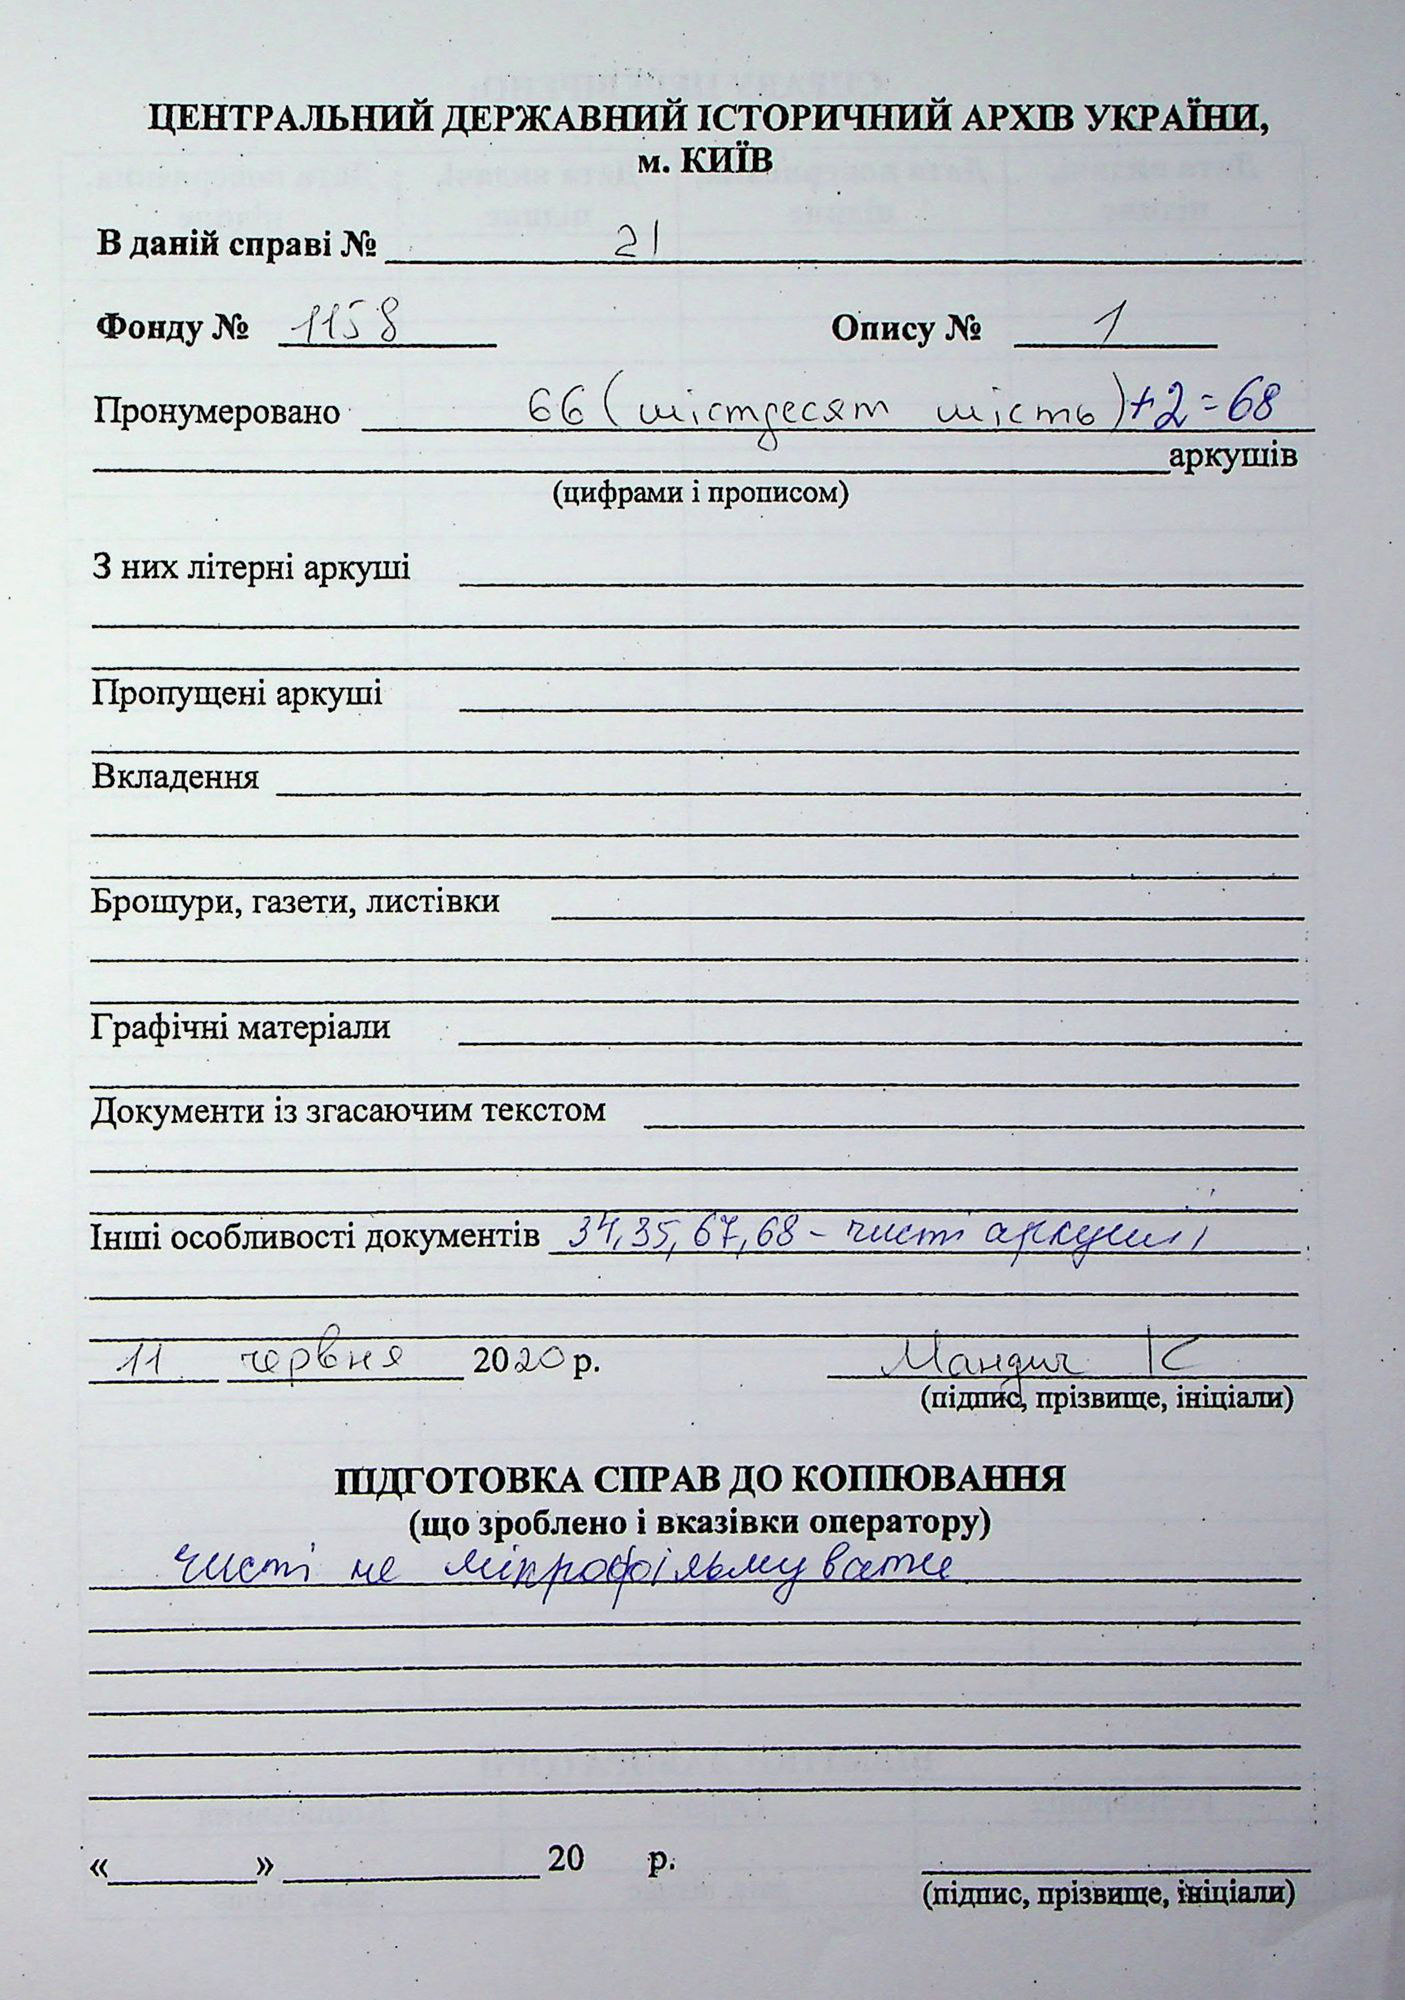 ЦЕНТРАЛЬНИЙ ДЕРЖАВНИЙ ІСТОРИЧНИЙ АРХІВ УКРАЇНИ,
м. КИЇВ
В даній справі № 21
Фонду № 1158 Опису № 1
Пронумеровано 66 (шістдесят шість) +2 = 68
аркушів
(цифрами і прописом)
З них літерні аркуші
Пропущені аркуші
Вкладення
Брошури, газети, листівки
Графічні матеріали
Документи із згасаючим текстом
Інші особливості документів 34, 35, 67, 68 – чисті аркуші
11 червня 2020 р. Мандич К
(підпис, прізвище, ініціали)
ПІДГОТОВКА СПРАВ ДО КОПІЮВАННЯ
(що зроблено і вказівки оператору)
чисті не мікрофільмувати
« » 20 р.
(підпис, прізвище, ініціали)